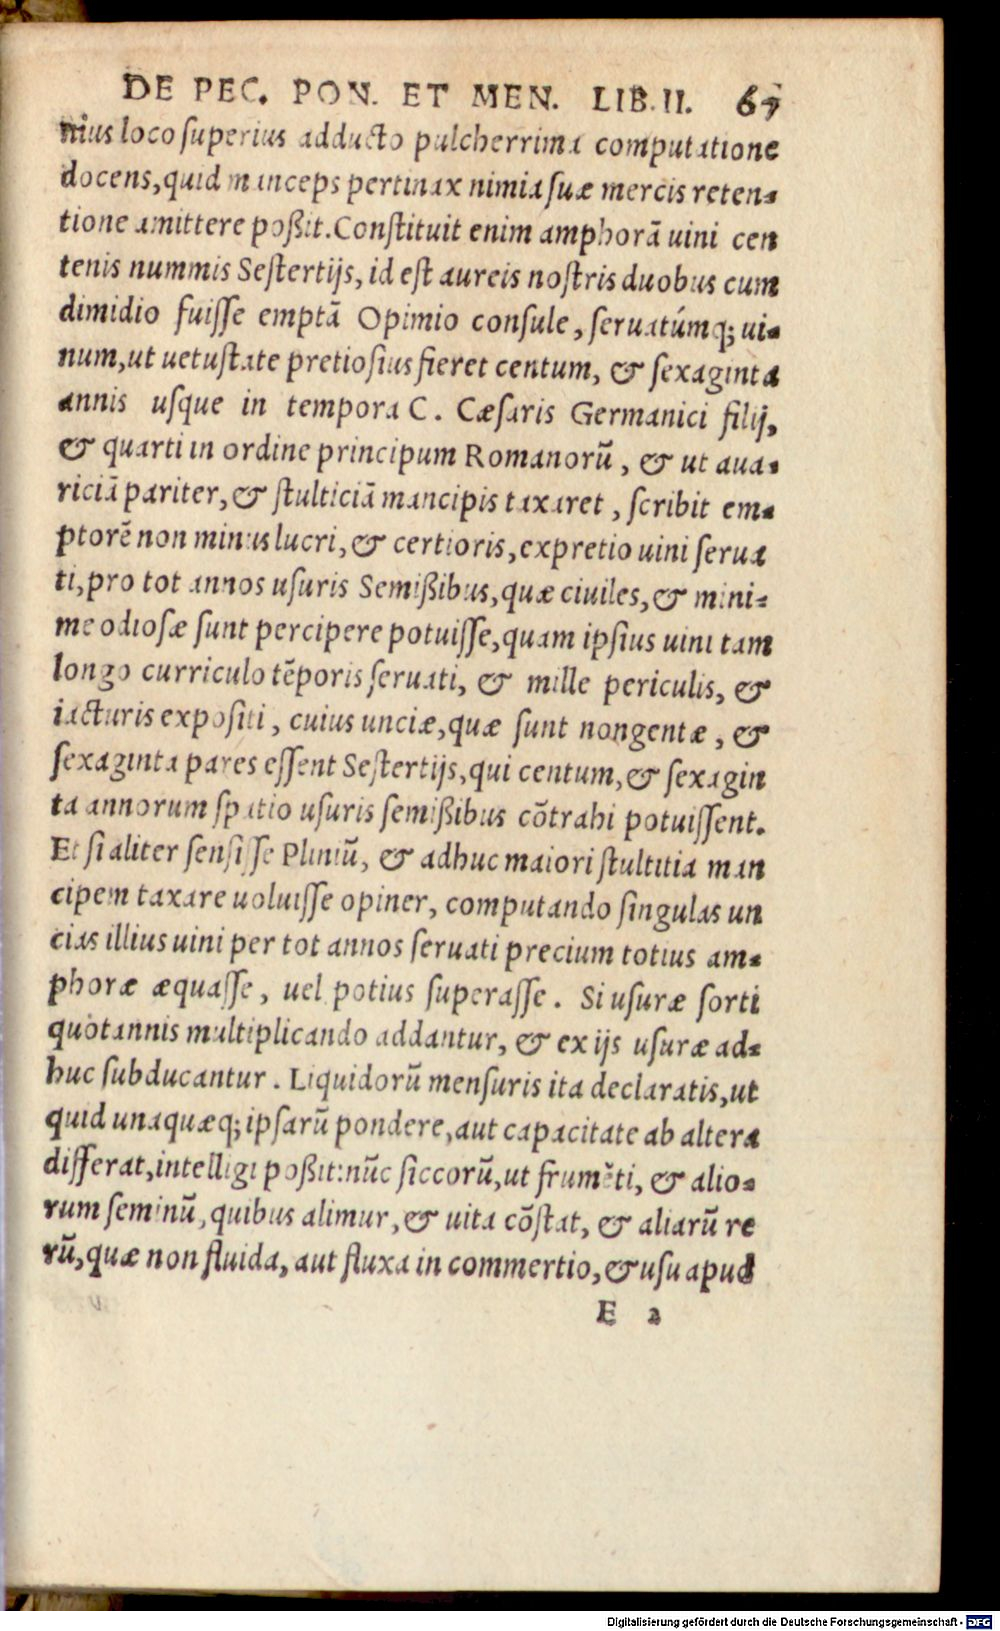 DE PEC. PON. ET MEN. LIB. II. 67
nius loco ſuperius adducto pulcherrima computatione
docens, quid manceps pertinax nimia ſuæ mercis reten-
tione amittere poßit. Conſtituit enim amphorã uini cen
tenis nummis Seſtertijs, id eſt aureis noſtris duobus cum
dimidio fuiſſe emptã Opimio conſule, ſeruatúmq; ui-
num, ut uetuſtate pretioſius fieret centum, & ſexaginta
annis uſque in tempora C. Cæſaris Germanici filij,
& quarti in ordine principum Romanorũ, & ut aua-
riciã pariter, & ſtulticiã mancipis taxaret, ſcribit em-
ptorẽ non minus lucri, & certioris, ex pretio uini ſerua
ti, pro tot annos uſuris Semißibus, quæ ciuiles, & mini-
me odioſæ ſunt percipere potuiſſe, quam ipſius uini tam
longo curriculo tẽporis ſeruati, & mille periculis, &
iacturis expoſiti, cuius unciæ, quæ ſunt nongentæ, &
ſexaginta pares eſſent Seſtertijs, qui centum, & ſexagin
ta annorum ſpatio uſuris ſemißibus cõtrahi potuiſſent.
Et ſi aliter ſenſiſſe Pliniũ, & adhuc maiori ſtultitia man
cipem taxare uoluiſſe opiner, computando ſingulas un
cias illius uini per tot annos ſeruati precium totius am-
phoræ æquaſſe, uel potius ſuperaſſe. Si uſuræ ſorti
quotannis multiplicando addantur, & ex ijs uſuræ ad-
huc ſubducantur. Liquidorũ menſuris ita declaratis, ut
quid unaquæq; ipſarũ pondere, aut capacitate ab altera
differat, intelligi poßit: nũc ſiccorũ, ut frumẽti, & alio-
rum ſeminũ, quibus alimur, & uita cõſtat, & aliarũ re
rũ, quæ non fluida, aut fluxa in commertio, & uſu apud
E 2
Digitalisierung gefördert durch die Deutsche Forschungsgemeinschaft - DFG